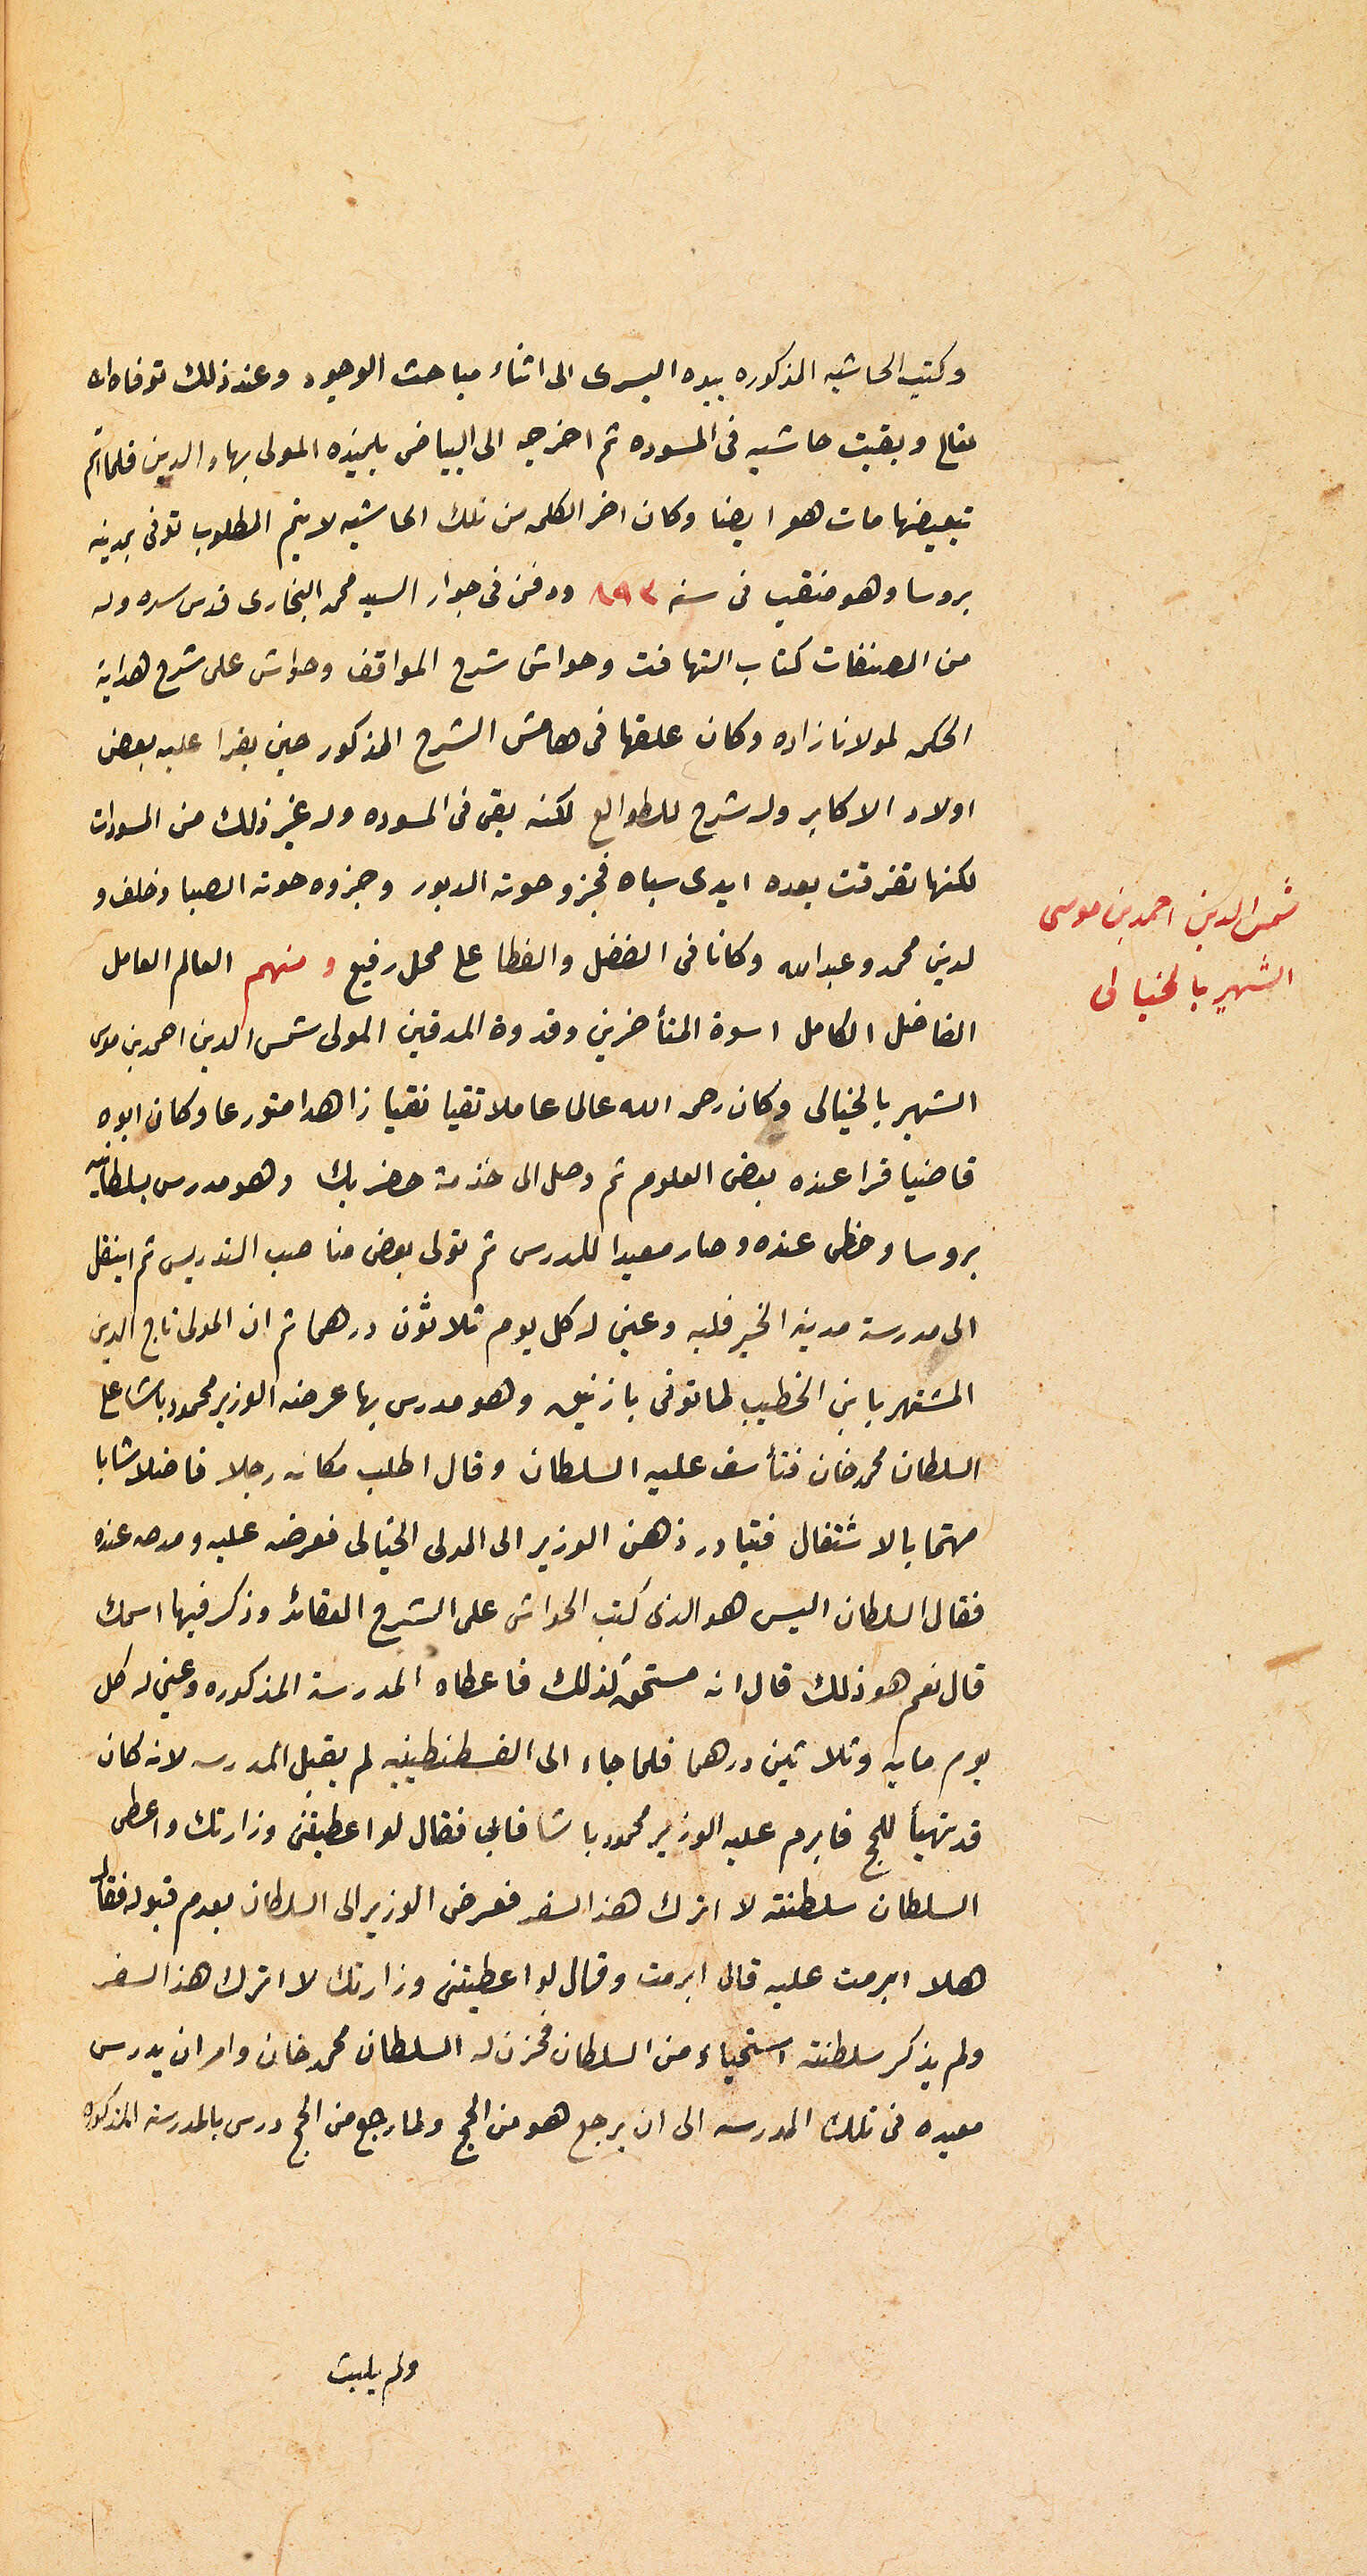 وكتب الحاشيه المذكوره بيده اليسرى الى اثناء مباحث الوجود وعند ذلك توفاه الله
تعالى وبقيت حاشيه فى المسوده ثم اخرجه الى البياض تلميذه المولى بهاء الدين فلما اتم
تبييضها مات هو ايضا وكان اخر الكلمه من تلك الحاشيه لا يتم المطلوب توفى بمدينه
بروسا وهو منقيب فى سنه ٨٩٣ ودفن فى جوار السيد محمد البخارى قدس سره وله
من المصنفات كتاب التهافت وحواشى شرح المواقف وحواش على شرح هداية
الحكمه لمولانا زاده وكان علقها فى هامش الشرح المذكور حين يقرا عليه بعض
اولاد الاكابر وله شرح للطوالع لكنه بقى فى المسوده وله غير ذلك من المسودات
لكنها تفرقت بعده ايدى سباه فجزو حوته الدبور وجزوه حوته الصبا وخلف و
لدين محمد وعبد الله وكانا فى الفضل والغطا على محل رفيع ومنهم العالم العامل
شمس الدين احمد بن موسى
الشهير بالخيالى
الفاضل الكامل اسوة المتأخرين وقدوة المدقين المولى شمس الدين احمد بن موسى
الشهير بالخيالى وكان رحمه الله عالما عاملا تقيا نقيا زاهدا متورعا وكان ابوه
قاضيا قرا عنده بعض العلوم ثم وصل الى خذمة حضر بك وهو مدرس بسلطانيه
بروسا وحظى عنده وصار معيدا للدرس ثم تولى بعض مناصب التدريس ثم انتقل
الى مدرسة مدينه الخير فلبه وعين له كل يوم ثلاثون درهما ثم ان المولى تاج الدين
المشتهر بابن الخطيب لما توفى بازنيق وهو مدرس بها عرضه الوزير محمود باشا على
السلطان محمد خان فتأسف عليه السلطان وقال اطلب مكانه رجلا فاضلا شابا
مهتما بالاشتغال فتبادر ذهن الوزير الى المولى الخيالى فعرضه عليه ومدحه عنده
فقال السلطان اليس هو الذى كتب الحواشى على الشرح العقائد وذكر فيها اسمك
قال نعم هو ذلك قال انه مستحق لذلك فاعطاه المدرسة المذكوره وعين له كل
يوم مايه وثلاثين درهما فلما جاء الى القسطنطينيه لم يقبل المدرسه لانه كان
قد تهيأ للحج فابرم عليه الوزير محمود باشا فابى فقال لو اعطيتنى وزارتك واعطى
السلطان سلطنته لا اترك هذا السفر فعرض الوزير الى السلطان بعدم قبوله فقال
هلا ابرمت عليه قال ابرمت وقال لو اعطيتنى وزارتك لا اترك هذا السفر
ولم يذكر سلطنته استحياء من السلطان فحزن له السلطان محمد خان وامر ان يدرس
معيده فى تلك المدرسه الى ان يرجع هو من الحج ولما رجع من الحج درس بالمدرسة المذكوره
ولم يلبث